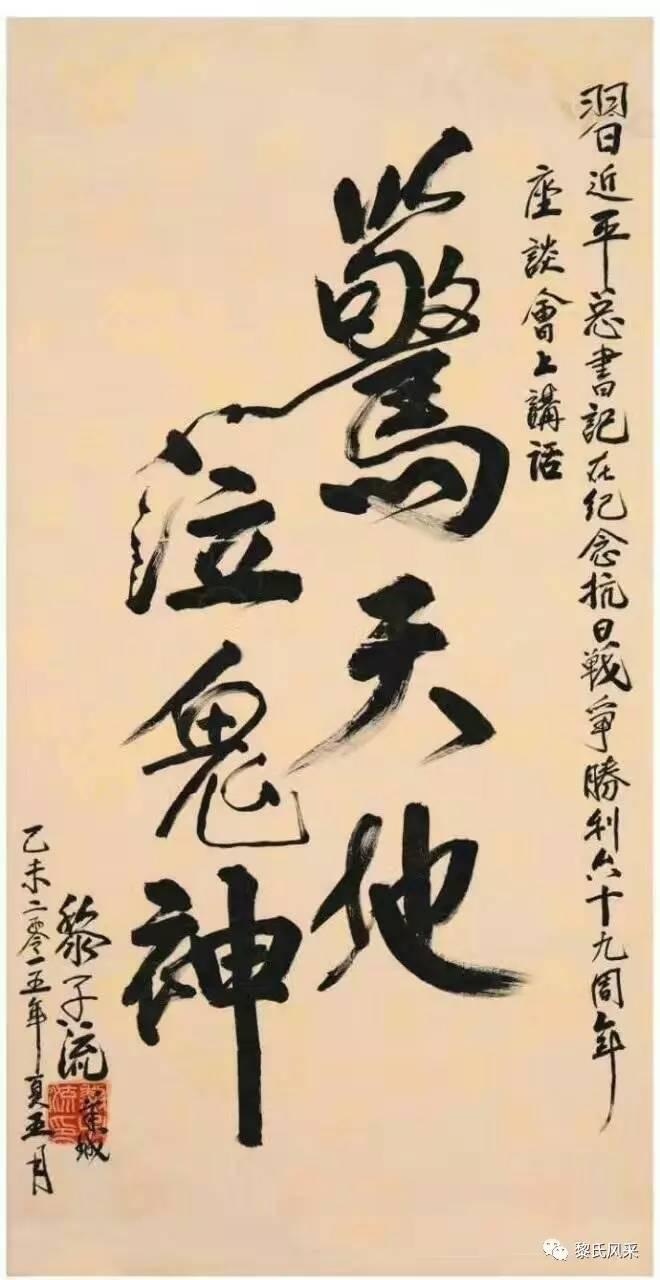 習近平总書記在紀念抗日戰爭勝利六十九周年
座談會上講話
驚天地
泣鬼神
黎子流
乙未二零一五年夏五月
黎氏风采